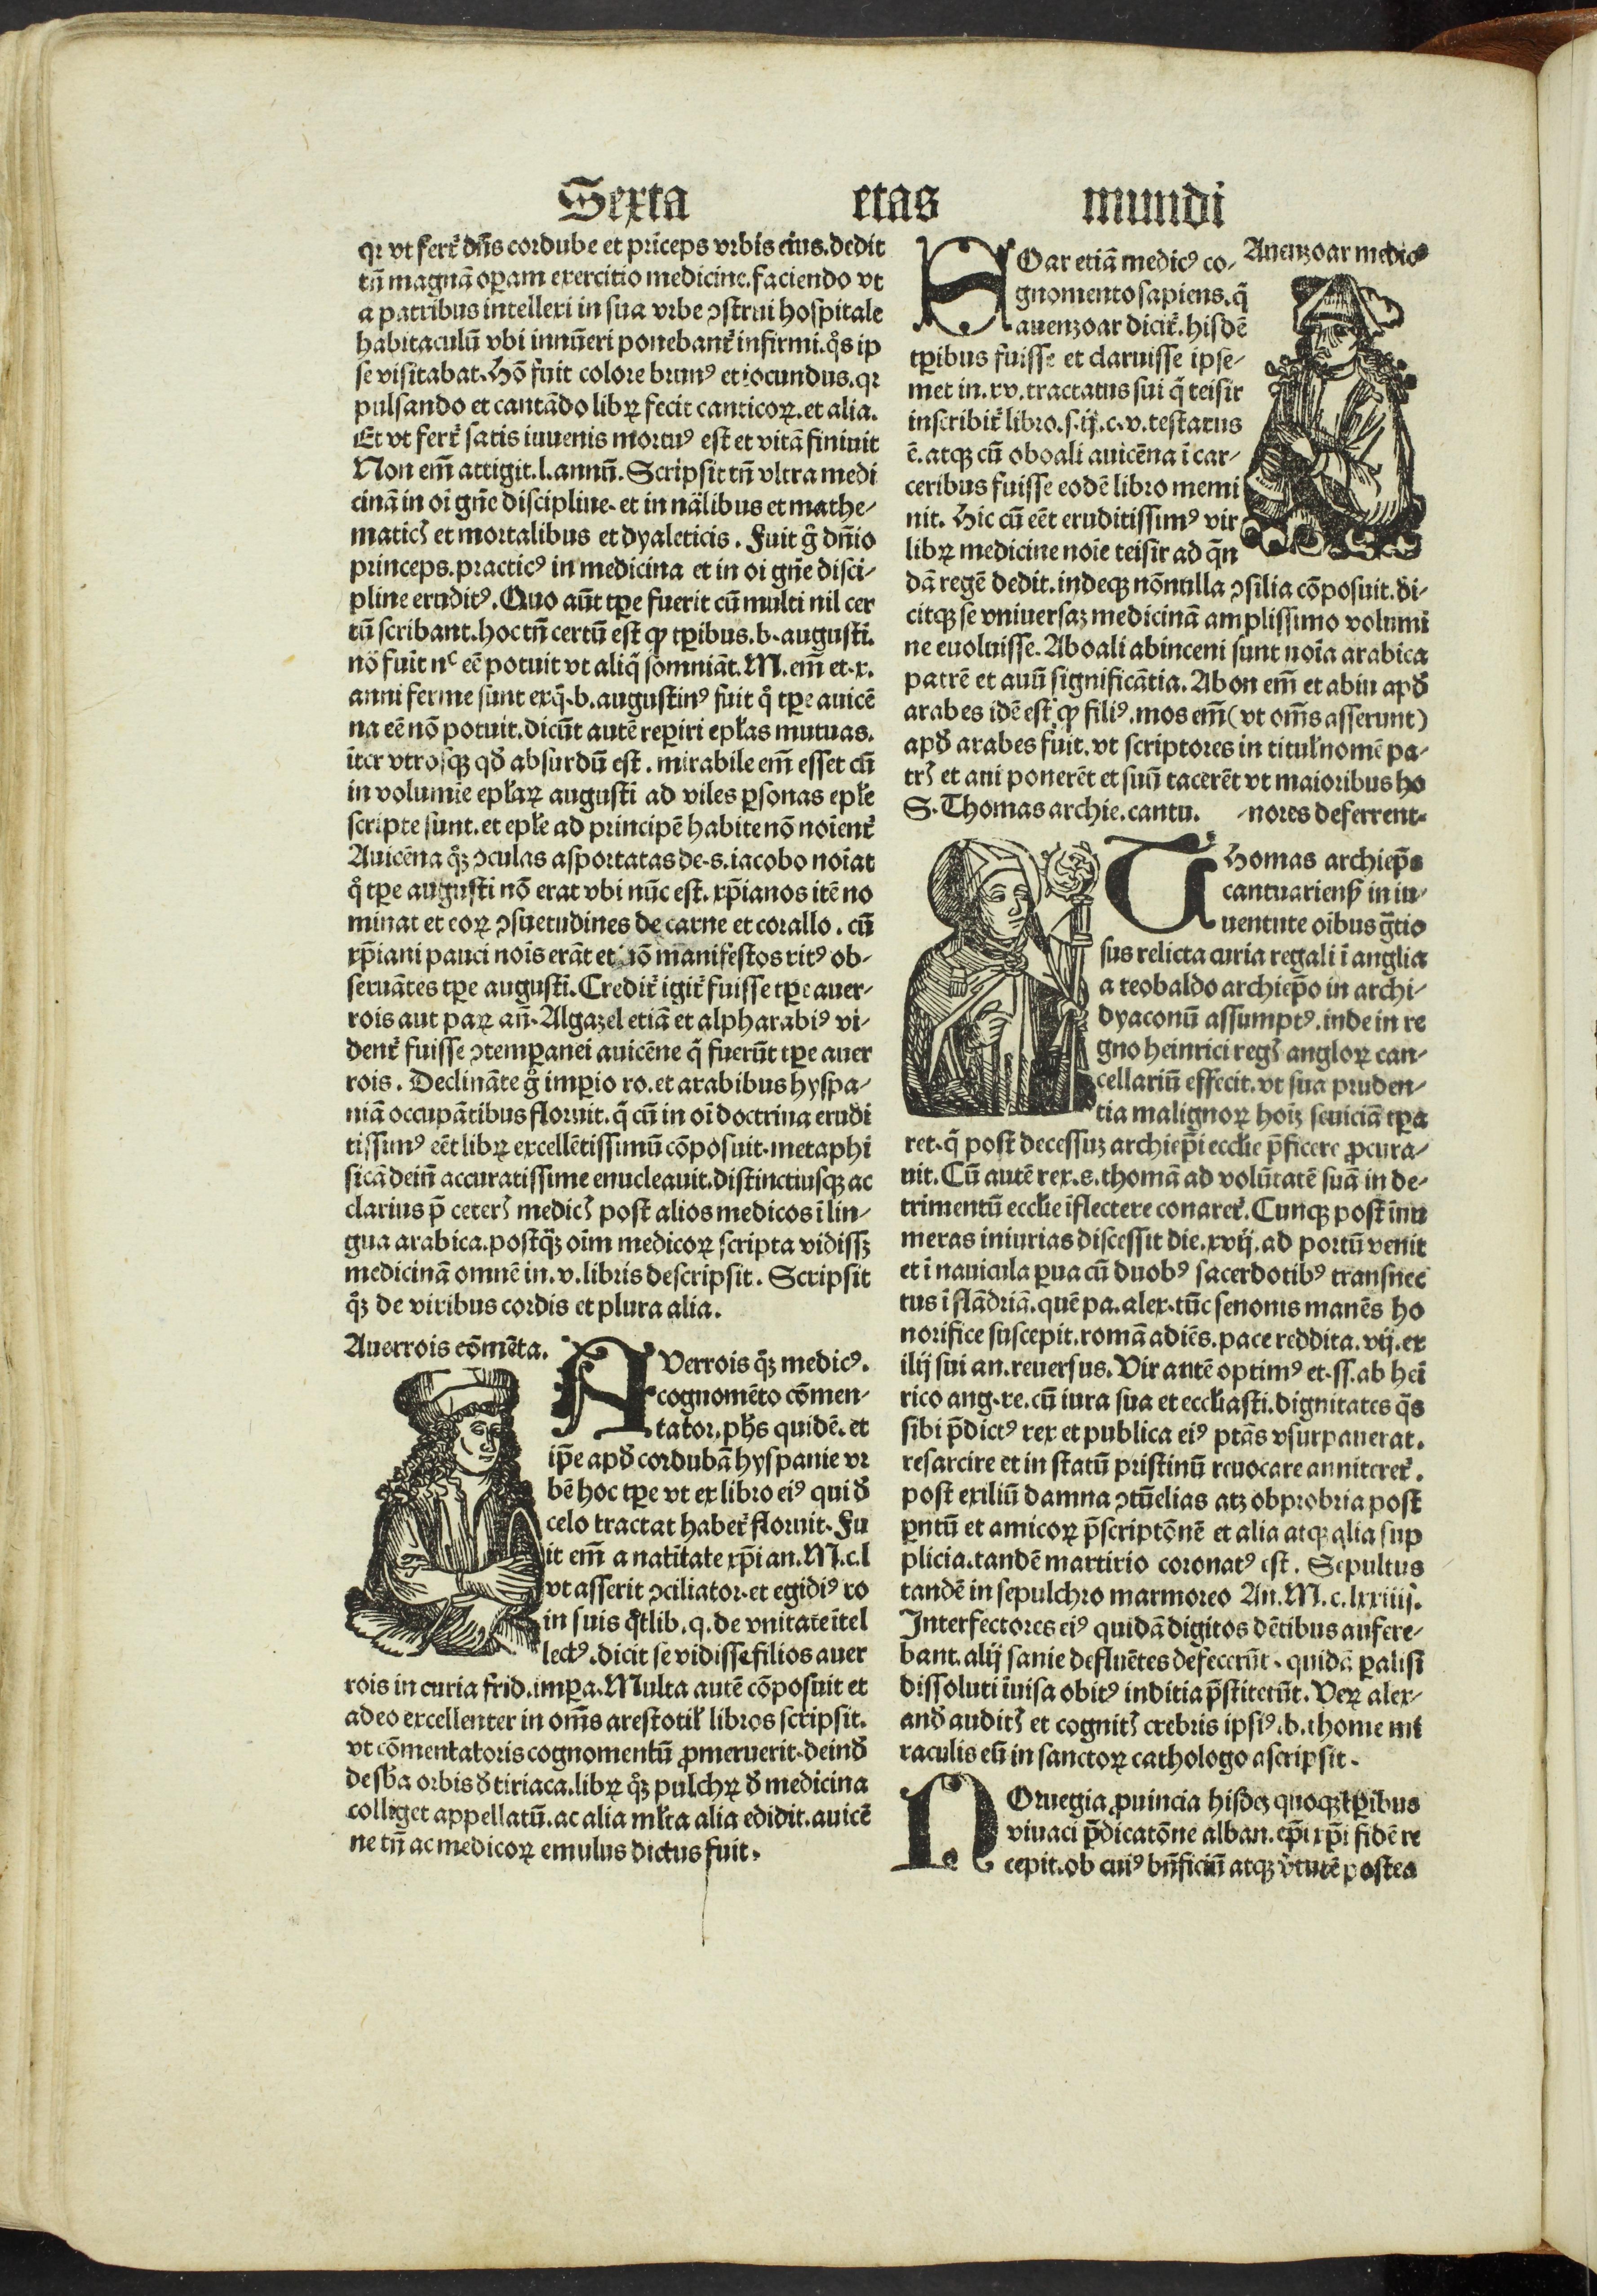 Sexta etas mundi
qꝛ vt fert᷑ dñs cordube et prĩceps vrbis eius. dedit
tñ magnã oꝑam exercitio medicine. faciendo vt
a patribus intellexi in sua vrbe ꝯstrui hospitale
habitaculũ vbi innũeri ponebant᷑ infirmi. q̊s ip
se visitabat. Hõ fuit colore brunꝰ et iocundus. qꝛ
pulsando et cantãdo libꝝ fecit canticoꝝ. et alia.
Et vt fert᷑ satis iuuenis mortuꝰ est et vitã finiuit
Non em̃ attigit .l. annũ. Scripsit tñ vltra medi
cinã in oĩ gñe discipline. et in nãlibus et mathe⸗
maticꝭ et mortalibus et dyaleticis. Fuit g̃ dñio
princeps. practicꝰ in medicina et in oi gñe disci⸗
pline eruditꝰ. Quo aũt tꝑe fuerit cũ multi nil cer
tũ scribant. hoc tñ certũ est ꝙ tꝑibus .b. augusti.
nõ fuit nᶜ eẽ potuit vt aliq̃ somniãt. M. em̃ et .x.
anni ferme sunt ex q̃ .b. augustinꝰ fuit q̊ tꝑe auicẽ
na eẽ nõ potuit. dicũt autẽ reꝑiri epłas mutuas.
ĩter vtrosqꝫ qđ absurdũ est. mirabile em̃ esset cũ
in volumie epłaꝝ augusti ad viles ꝑsonas epłe
scripte sunt. et epłe ad principẽ habite nõ noĩent᷑
Auicẽna q̊ꝫ ꝯculas asportatas de .s. iacobo noĩat
q̊ tꝑe augusti nõ erat vbi nũc est. xp̃ianos itẽ no
minat et eoꝝ ꝯsuetudines de carne et corallo. cũ
xp̃iani pauci nois erãt et nõ manifestos ritꝰ ob⸗
seruãtes tꝑe augusti. Credit᷑ igit᷑ fuisse tꝑe auer⸗
rois aut paꝝ añ. Algazel etiã et alpharabiꝰ vi⸗
dent᷑ fuisse ꝯtemꝑanei auicẽne q̃ fuerũt tꝑe auer
rois. Declinãte g̃ imꝑio ro. et arabibus hyspa⸗
niã occupãtibus floruit. q̃ cũ in oĩ doctrina erudi
tissimꝰ eẽt libꝝ excellẽtissimũ cõposuit. metaphi
sicã deiñ accuratissime enucleauit. distinctiusqꝫ ac
clarius p̃ ceterꝭ medicꝭ post alios medicos ĩ lin⸗
gua arabica. postq̃ꝫ oĩm medicoꝝ scripta vidissꝫ
medicinã omnẽ in .v. libris descripsit. Scripsit
q̊ꝫ de viribus cordis et plura alia.
Auerrois cõmẽta.
AVerrois q̊ꝫ medicꝰ.
cognomẽto cõmen⸗
tator. phs quidẽ. et
ip̃e apđ cordubã hyspanie vr
bẽ hoc tꝑe vt ex libro eiꝰ qui đ
celo tractat habet᷑ floruit. Fu
it em̃ a natiuitate xp̃i an. M.c.l
vt asserit ꝯciliator. et egidiꝰ ro
in suis q̊tlib. q. de vnitate ĩtel
lectꝰ. dicit se vidisse filios auer
rois in curia frid. imꝑa. Multa autẽ cõposuit et
adeo excellenter in om̃s arestotił libros scripsit.
vt cõmentatoris cognomentũ ꝓmeruerit. deinđ
de sb̃a orbis đ tiriaca. libꝝ q̊ꝫ pulchꝝ đ medicina
colliget appellatũ. ac alia młta alia edidit. auicẽ
ne tñ ac medicoꝝ emulus dictus fuit.
Auenzoar medicꝰ
Oar etiã medicꝰ co⸗
gnomento sapiens. q̃
auenzoar dicit᷑. hisdẽ
tꝑibus fuisse et claruisse ipse⸗
met in .xv. tractatus sui q̃ teisir
inscribit᷑ libro .s. ij. c. v. testatus
ẽ. atqꝫ cũ oboali auicẽna ĩ car⸗
ceribus fuisse eodẽ libro memi
nit. Hic cũ eẽt eruditissimꝰ vir
libꝝ medicine noĩe teisir ad q̃n
dã regẽ dedit. indeqꝫ nõnulla ꝯsilia cõposuit. di⸗
citqꝫ se vniuersaꝫ medicinã amplissimo volumi
ne euoluisse. Aboali abinceni sunt noĩa arabica
patrẽ et auũ significãtia. Abon em̃ et abin apđ
arabes idẽ est ꝙ filiꝰ. mos em̃ (vt om̃s asserunt)
apđ arabes fuit. vt scriptores in tituł nomẽ pa⸗
trꝭ et aui ponerẽt et suũ tacerẽt vt maioribus ho
S. Thomas archie. cantu. ⸗nores deferrent⸗
THomas archiep̃s
cantuarienꝭ in iu⸗
uentute oĩbus g̃tio
sus relicta curia regali ĩ anglia
a teobaldo archiep̃o in archi⸗
dyaconũ assumptꝰ. inde in re
gno heinrici regꝭ angloꝝ can⸗
cellariũ effecit. vt sua pruden⸗
tia malignoꝝ hoĩꝫ seuiciã tꝑa
ret. q̃ post decessuꝫ archiep̃i eccłie p̃ficere ꝓcura⸗
uit. Cũ autẽ rex .s. thomã ad volũtatẽ suã in de⸗
trimentũ eccłie ĩflectere conaret᷑. Cunqꝫ post ĩnu
meras iniurias discessit die .xvij. ad portũ venit
et ĩ nauicula ꝑua cũ duobꝰ sacerdotibꝰ transuec
tus ĩ flãdriã. quẽ pa. alex. tũc senonis manẽs ho
norifice suscepit. romã adiẽs. pace reddita .vij. ex
ilij sui an. reuersus. Vir autẽ optimꝰ et .ss. ab hei
rico ang. re. cũ iura sua et eccłiasti. dignitates q̃s
sibi p̃dictꝰ rex et publica eiꝰ ptãs vsurpauerat.
resarcire et in statũ pristinũ reuocare anniteret᷑.
post exiliũ damna ꝯtũelias atqꝫ obprobria post
pntũ et amicoꝝ p̃scriptõnẽ et alia atqꝫ alia sup
plicia. tandẽ martirio coronatꝰ est. Sepultus
tandẽ in sepulchro marmoreo An. M.c.lxxiiij.
Interfectores eiꝰ quidã digitos dẽtibus aufere⸗
bant. alij sanie defluẽtes defecerũt. quidã ꝑalisi
dissoluti ĩuisa obitꝰ inditia p̃stiterũt. Veꝝ alex⸗
anđ auditꝭ et cognitꝭ crebris ipsiꝰ .b. thome mi
raculis eũ in sanctoꝝ cathologo ascripsit.
NOruegia ꝓuincia hisdeꝫ quoqꝫ tꝑibus
viuaci p̃dicatõne alban. ep̃i xp̃i fidẽ re
cepit. ob cuiꝰ bñficiũ atqꝫ v̓tutẽ postea